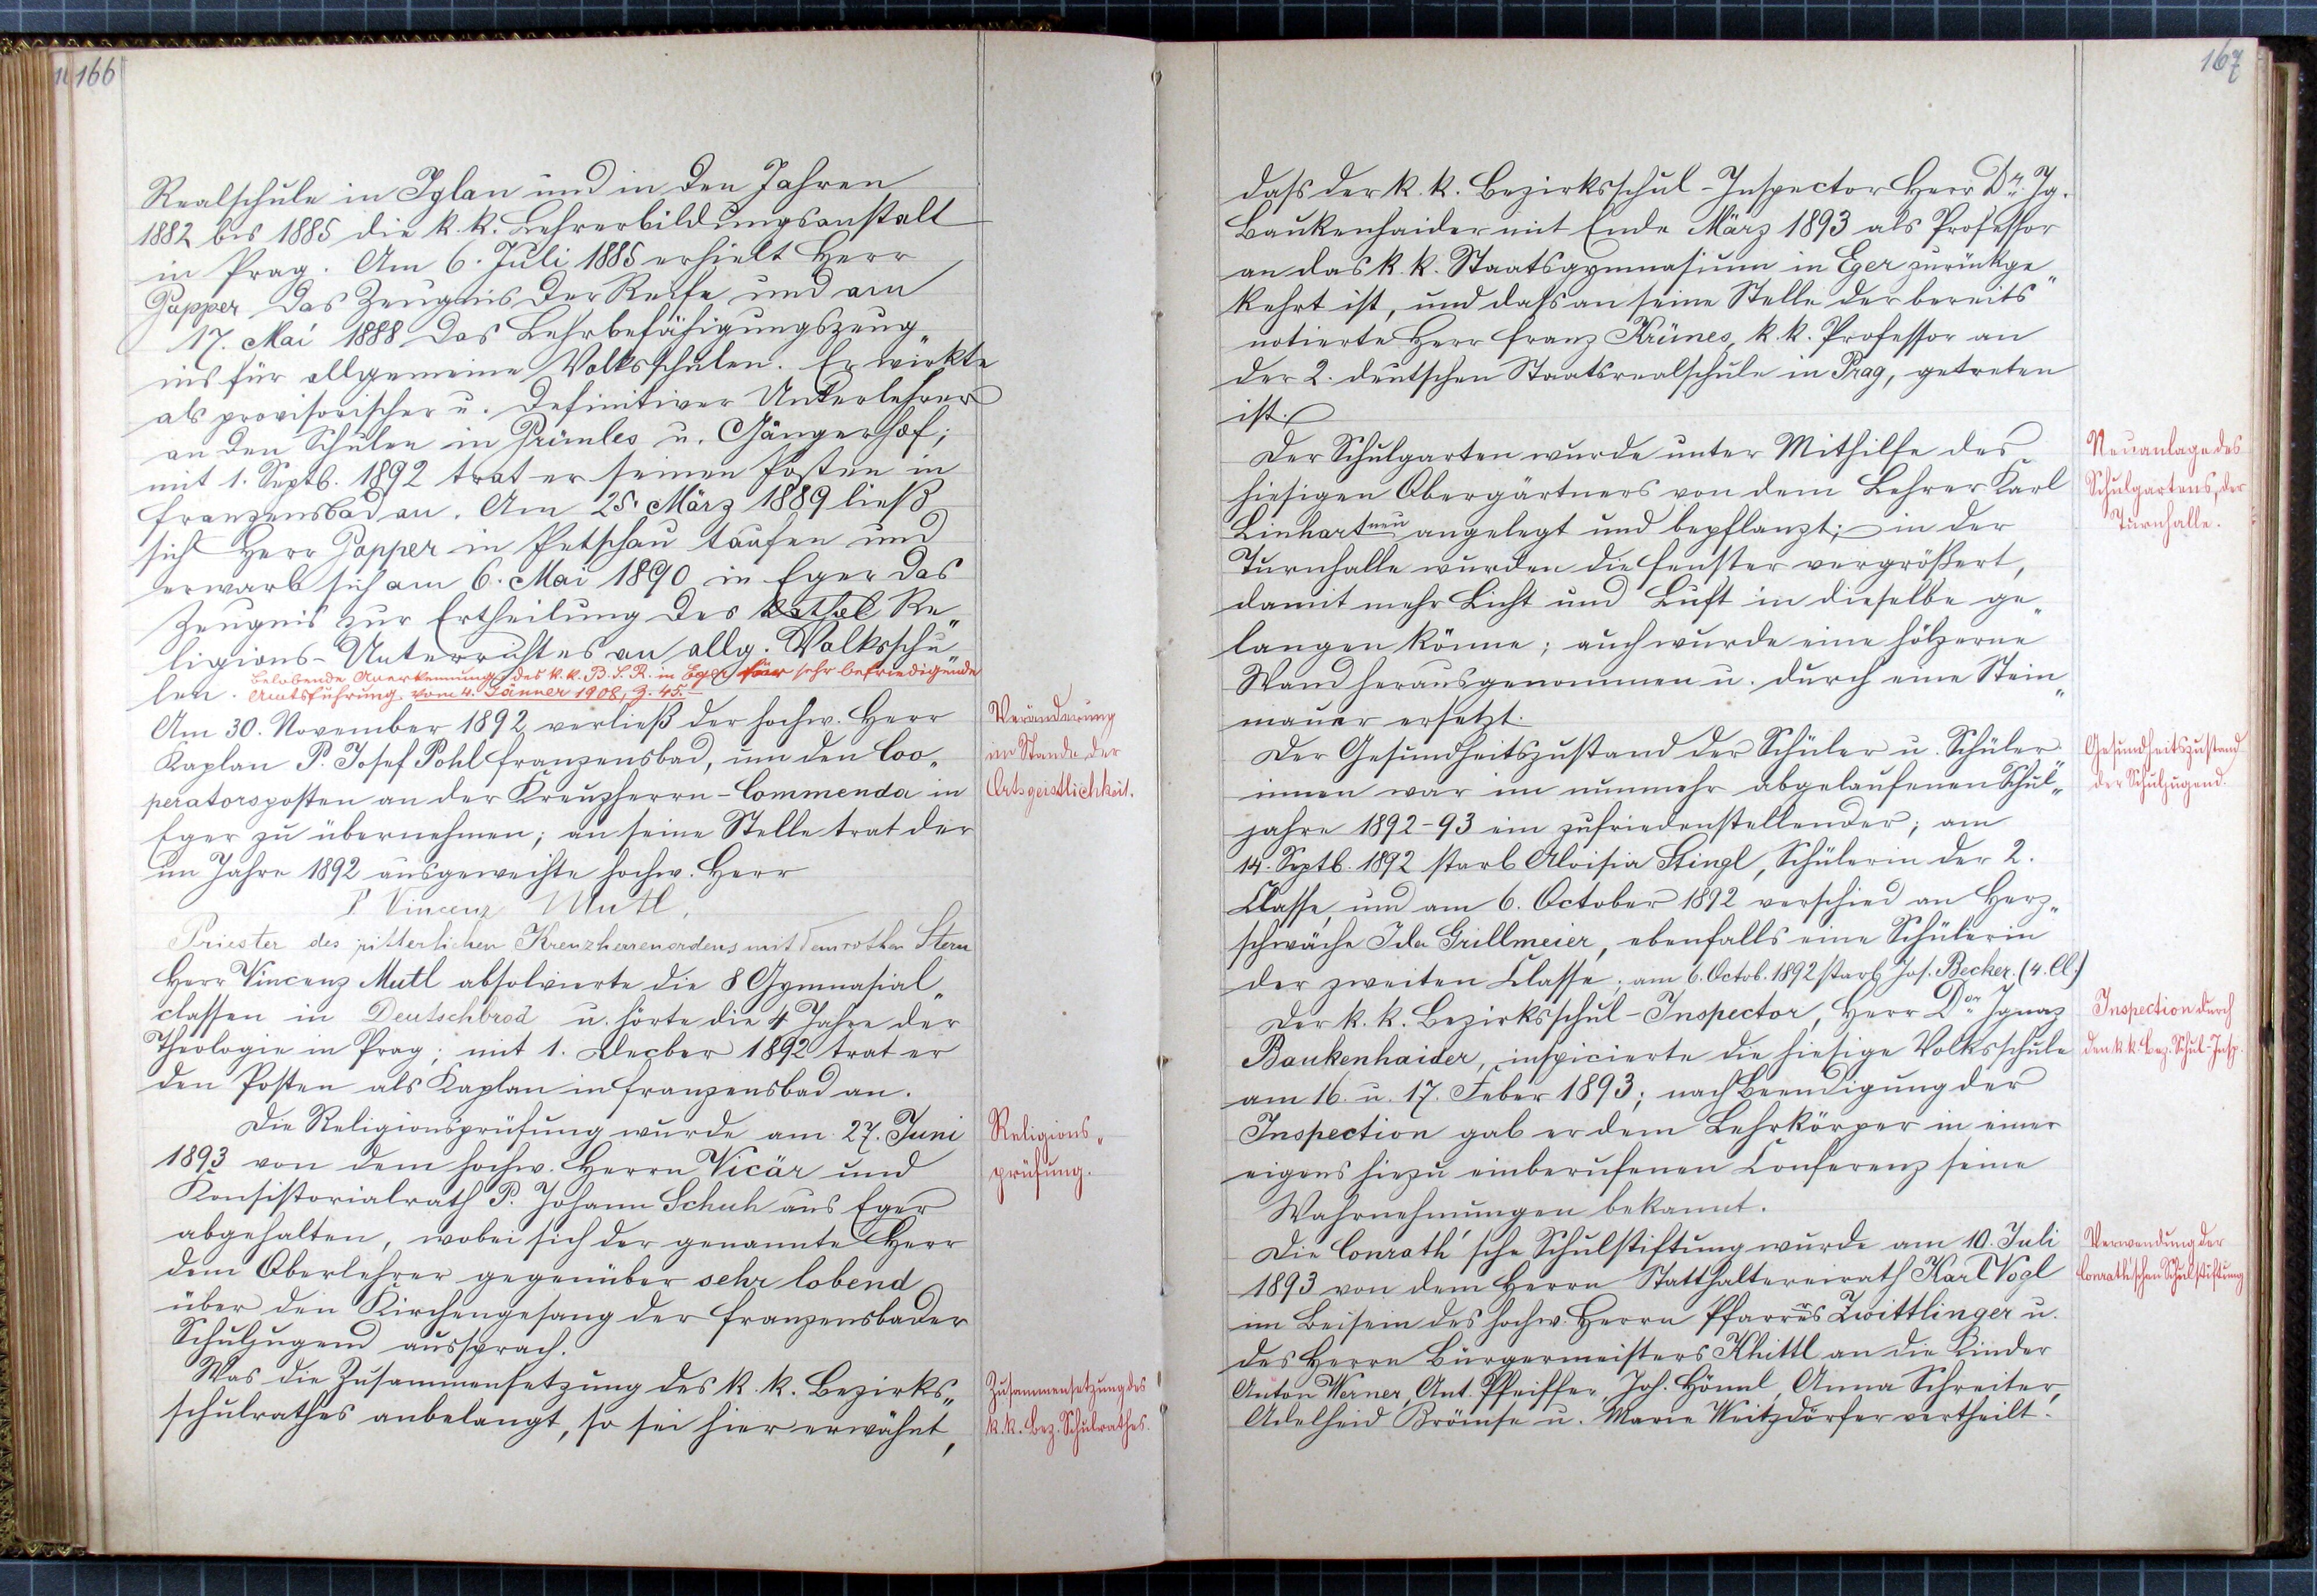 166
Realschule in Iglau und in den Jahren
1882 bis 1885 die k. k. Lehrerbildungsanstalt
in Prag. Am 6. Juli 1885 erhielt Herr
Popper das Zeugnis der Reife und am
17. Mai 1888 das Lehrbefähigungszeug„
nis für allgemeine Volksschulen. Er wirkte
als provisorischer u. definitiver Unterlehrer
an den Schulen in Prömles u. Gängerhof;
mit 1. Septb. 1892 trat er seinen Posten in
Franzensbad an. Am 25. März 1889 ließ
sich Herr Popper in Petschau taufen und
erwarb sich am 6. Mai 1890 in Eger das
Zeugnis zur Ertheilung des kathol Re„
ligions-Unterrichtes an allg. Volksschu„
len. Belobende Anerkennung des k. k. B. S. R. in Eger für sehr befriedigende
Amtsführung. vom 4. Jänner 1908, Z. 45.
Am 30. November 1892 verließ der hochw. Herr
Kaplan P. Josef Pohl Franzensbad, um den Coo„
peratorsposten an der Kreuzherrn-Commenda in
Eger zu übernehmen; an seine Stelle trat der
im Jahre 1892 ausgeweihte hochw. Herr
P. Vincenz Mutl,
Priester des ritterlichen Kreuzherrenordens mit dem rothen Stern
Herr Vincenz Mutl absolvierte die 8 Gymnasial„
classen in Deutschbrod u. hörte die 4 Jahre der
Theologie in Prag; mit 1. Decber 1892 trat er
den Posten als Kaplan in Franzensbad an.
Die Religionsprüfung wurde am 27. Juni
1893 von dem hochw. Herrn Vicär und
Konsistorialrath P. Johann Schuh aus Eger
abgehalten, wobei sich der genannte Herr
dem Oberlehrer gegenüber sehr lobend
über den Kirchengesang der Franzensbader
Schuljugend aussprach.
Was die Zusammensetzung des k. k. Bezirks„
schulrathes anbelangt, so sei hier erwähnt,
Veränderung
im Stande der
Ortsgeistlichkeit.
Religions„
prüfung.
Zusammensetzung des
k. k. Bez. Schulrathes.
167
dass der k. k. Bezirksschul-Inspector Herr Dr. Ig.
Baukenhaider mit Ende März 1893 als Professor
an das k. k. Staatsgymnasium in Eger zurückge„
kehrt ist, und dass an seine Stelle der bereits
notierte Herr Franz Krünes, k. k. Professor an
der 2. deutschen Staatsrealschule in Prag, getreten
ist.
Der Schulgarten wurde unter Mithilfe des
hiesigen Obergärtners von dem Lehrer Karl
Linhart neu angelegt und bepflanzt; in der
Turnhalle wurden die Fenster vergrößert,
damit mehr Licht und Luft in dieselbe ge„
langen könne; auch wurde eine hölzerne
Wand herausgenommen u. durch eine Stein„
mauer ersetzt.
Der Gesundheitszustand der Schüler u. Schüler„
innen war im nunmehr abgelaufenen Schul„
jahre 1892-93 ein zufriedenstellender; am
14. Septb. 1892 starb Aloisia Stingl, Schülerin der 2.
Classe, und am 6. October 1892 verschied an Herz„
schwäche Ida Grillmeier, ebenfalls eine Schülerin
der zweiten Classe; am 6. Octob. 1892 starb Jos. Becker. (4. Cl.)
Der k. k. Bezirksschul-Inspector, Herr Dor Ignaz
Baukenhaider, inspicierte die hiesige Volksschule
am 16. u. 17. Feber 1893; nach Beendigung der
Inspection gab er dem Lehrkörper in einer
eigens hiezu einberufenen Conferenz seine
Wahrnehmungen bekannt.
Die Conrath'sche Schulstiftung wurde am 10. Juli
1893 von dem Herrn Statthaltereirath Karl Vogl
im Beisein des hochw. Herrn Pfarrers Zwittlinger u.
des Herrn Bürgermeisters Khittl an die Kinder
Anton Werner, Ant. Pfeiffer, Joh. Hönnl, Anna Schreiter,
Adelheid Brömse u. Marie Weitzdörfer vertheilt.
Neuanlage des
Schulgartens, der
Turnhalle.
Gesundheitszustand
der Schuljugend.
Inspection durch
den k. k. Bez. Schul-Insp.
Verwendung der
Conrath'schen Schulstiftung